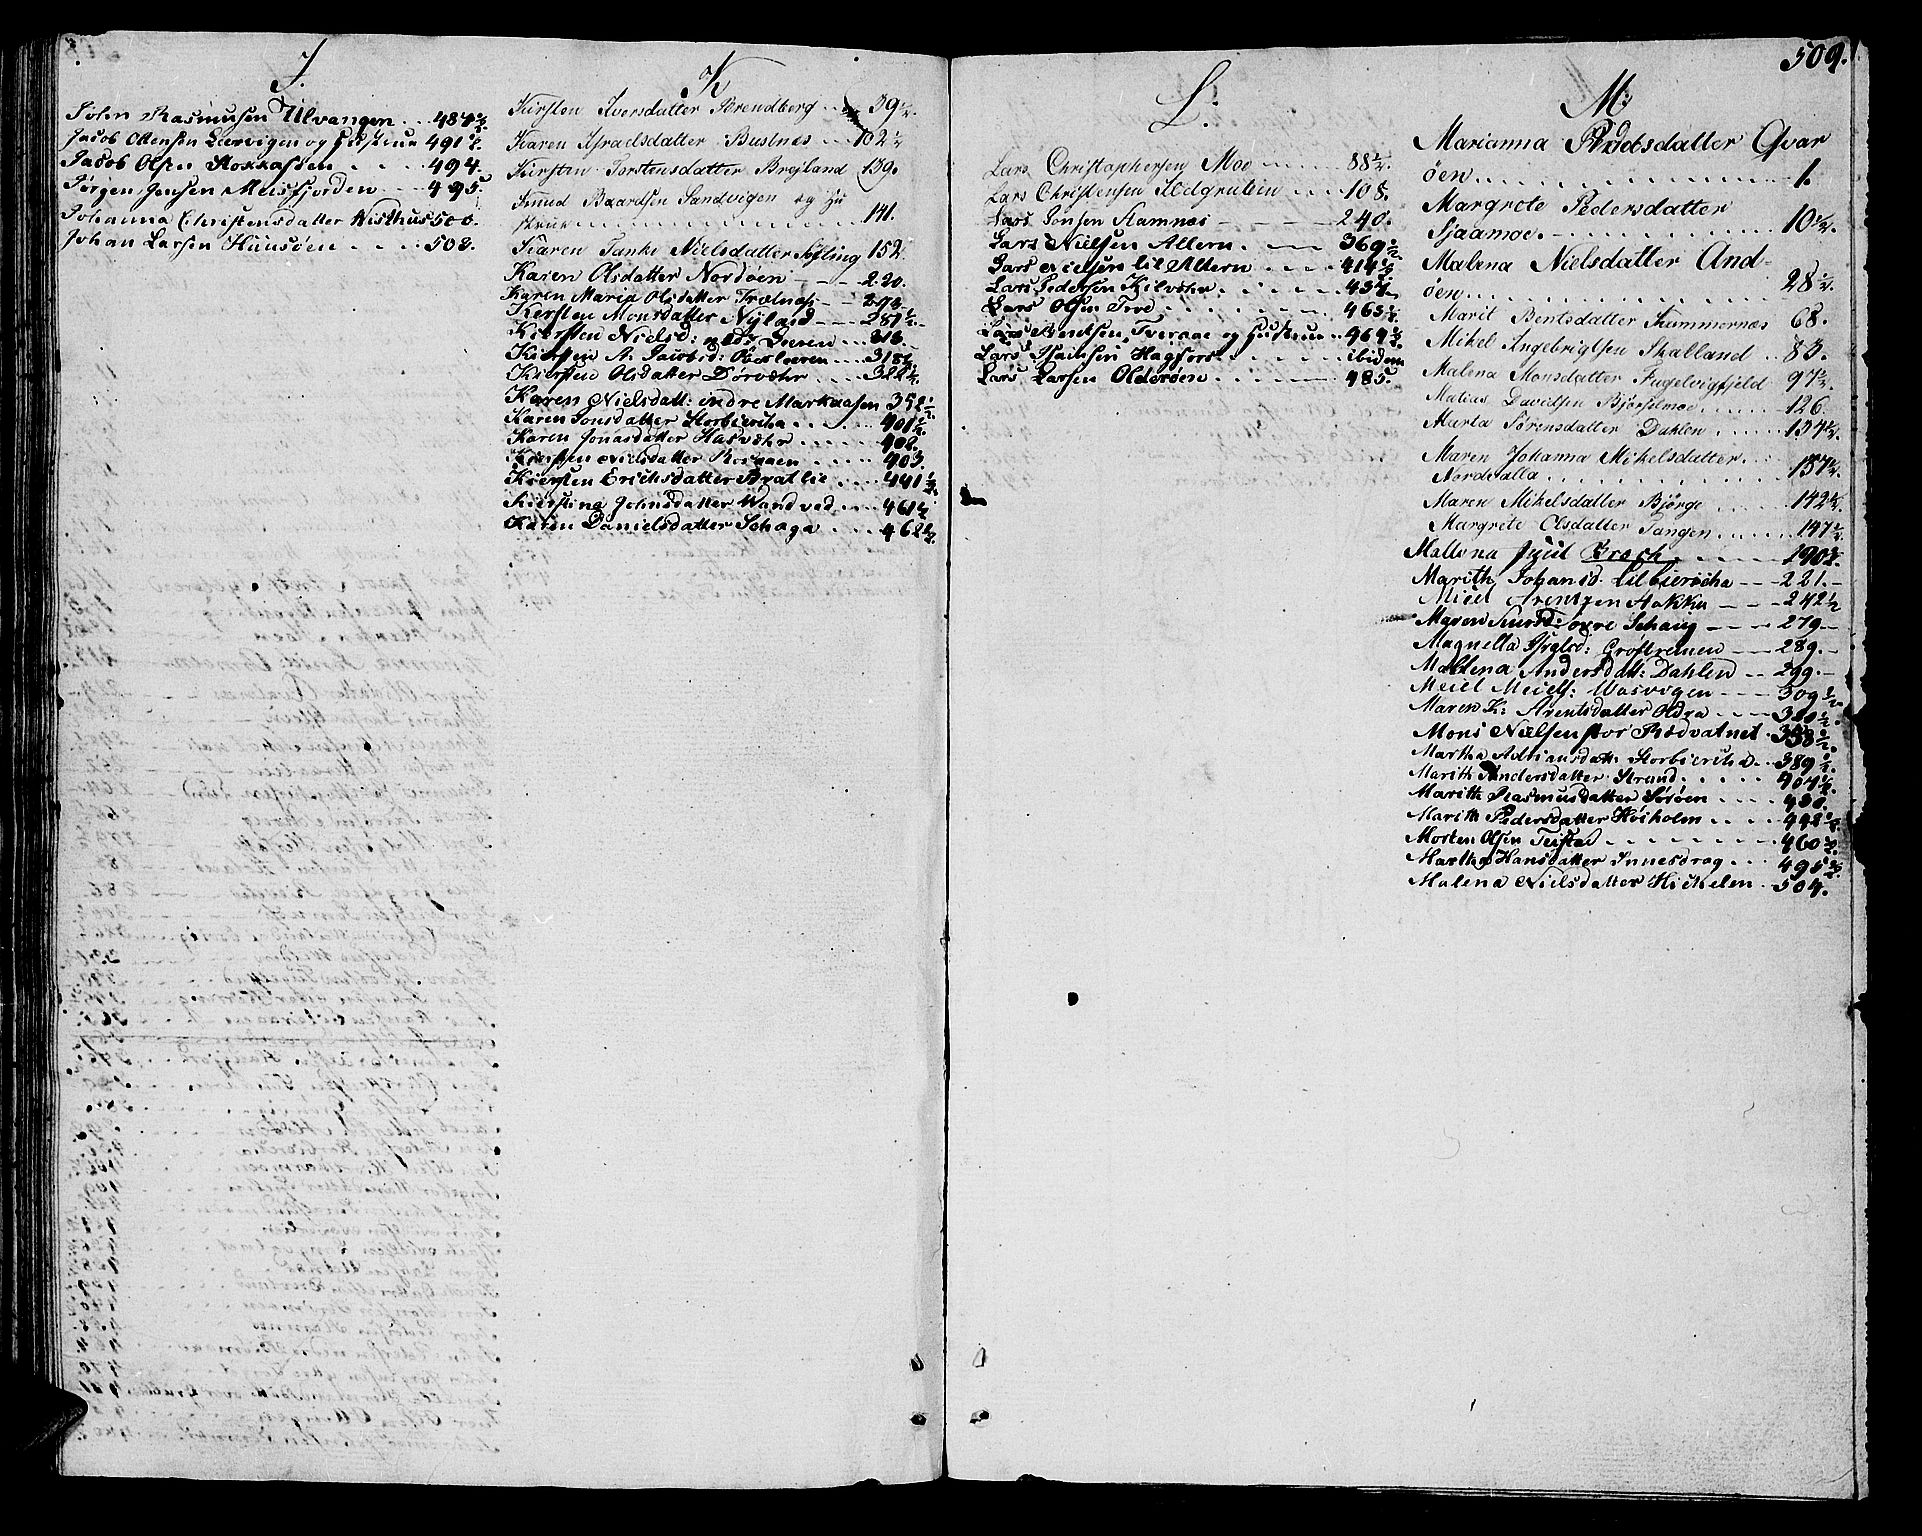 J.
John Rasmusen Ulvangen . . . 487½
Jacob Ottensen Leervigen og Hustrue 491½
Jacob Olsen Stokkassen . . . 494.
Jørgen Jensen Meisfjorden . . . 495.
Johanna Christensdatter Nisthus 500.
Johan Larsen Huusøen . . . 508.
K
Kirsten Iversdatter Brendberg . . . 39½
Karen Israelsdatter Bustnes . . . 102½
Kirsten Torstensdatter Brejland 139.
Knud Baardsen Sandvigen og Hu
strue . . . 141.
Karen Tanke Nielsdatter Søfting 152.
Karen Olsdatter Nordøen . . . 220.
Karen Maria Olsdatter Trælnæss
Kersten Monsdatter Nyland . . . 287½
Kiersten Nielsd: . . . 313.
Kiersten A. Jacobsd: . . . 318½
Kiersten Olsdatter Dørvæhr . . . 322½
Karen Nielsdatt: indre Markaasen 352½
Karen Jonsdatter Storbiericha . . . 401½
Karen Jonasdatter Hasvæhr . . . 402.
Kiersten Nielsdatter . . . 403.
Kiersten Erichsdatter Bratlie . . . 441½
Kierstina Johnsdatter Wandved . . . 461½
Karen Danielsdatter Schaga . . . 462½
L:
Lars Christophersen Moe . . . 88½
Lars Christensen Ildgruben . . . 108.
Lars Jonsen Kamnæs . . . 240.
Lars Nielsen Altern . . . 369½
Lars Nielsen lil Altern . . . 414½
Lars Pedersen Kilvæhr . . . 457
Lars Olsen Troe . . . 465½
Lars Bentsen, Tveraae og Hustrue . . . 469½
Lars Isachsen Hagfors . . . ibidem
Lars Larsen Olderøen . . . 485.
509.
M:
Marianna Pedersdatter Qvar
øen . . . 1.
Margrete Pedersdatter
Sjaamoe . . . 10½.
Malena Nielsdatter And-
øen . . . 28½.
Marit Bentsdatter Kummernæs 68.
Mikel Ingebrigtsen Skalland . . 83.
Malena Monsdatter Fugelvigfjeld 97½.
Matias Davidsen Bjørselmoe . . . 126.
Marta Sørensdatter Dahlen . . . 134½.
Maren Johanna Mikelsdatter
Nordvalla . . . 137½.
Maren Mikelsdatter Bjørge . . . 142½.
Margrete Olsdatter Tangen . . . 147½
Mallena Juul Broch . . . 190½.
Marith Johansd. Lilbiericha . . . 221.
Miel Arentzen Hakke . . . 242½
Maren Knudsd: øvre Schaug . . . 279
Magnella Isralsd: Grøftremen . . . 289.
Mallena Andersdatt: Dahlen . . 299.
Meiel Meiels: Wasvogen . . . 309½
Maren K: Arentsdatter Oldra . . . 320½
Mons Nielsen stor Rødvatnet . 338½
Martha Adriansdatt: Storbiericha . . 389½
Marith Andersdatter Strand . . . 404½
Marith Rasmusdatter Sørøen . . . 430.
Marith Pedersdatter Høiholm . . . 448½
Morten Olsen Teistad . . . 460½
Martha Hansdatter Innesdrag . . . 495½
Malena Nielsdatter Hichelen . 504.